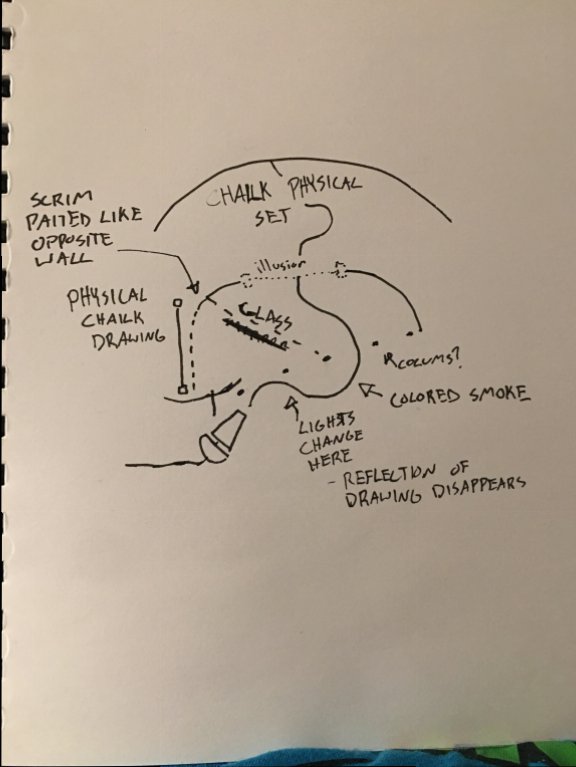 CHALK PHYSICAL
SET
SCRIM
PAITED LIKE
OPPOSITE
WALL
illusion
PHYSICAL
CHAILK
DRAWING
GLASS
COLUMS?
COLORED SMOKE
LIGHTS
CHANGE
HERE
- REFLECTION OF
DRAWING DISAPPEARS